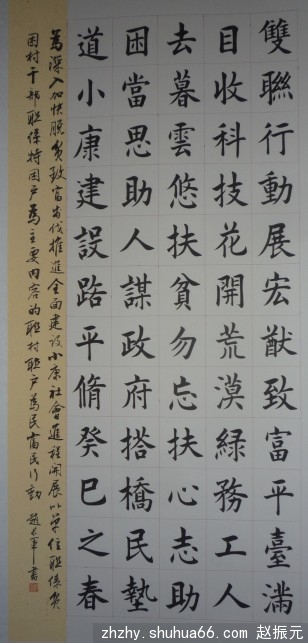 雙聯行動展宏猷致富平臺滿
目收科技花開荒漠綠務工人
去暮雲悠扶貧勿忘扶心志助
困當思助人謀政府搭橋民墊
道小康建設路平脩癸巳之春
為深入加快脫貧致富步伐推進全面建設小康社會進程開展以單位聯係貧
困村干部聯係特困戶為主要內容的聯村聯戶為民富民行動 趙 書
zhzhy.shuhua66.com 赵振元